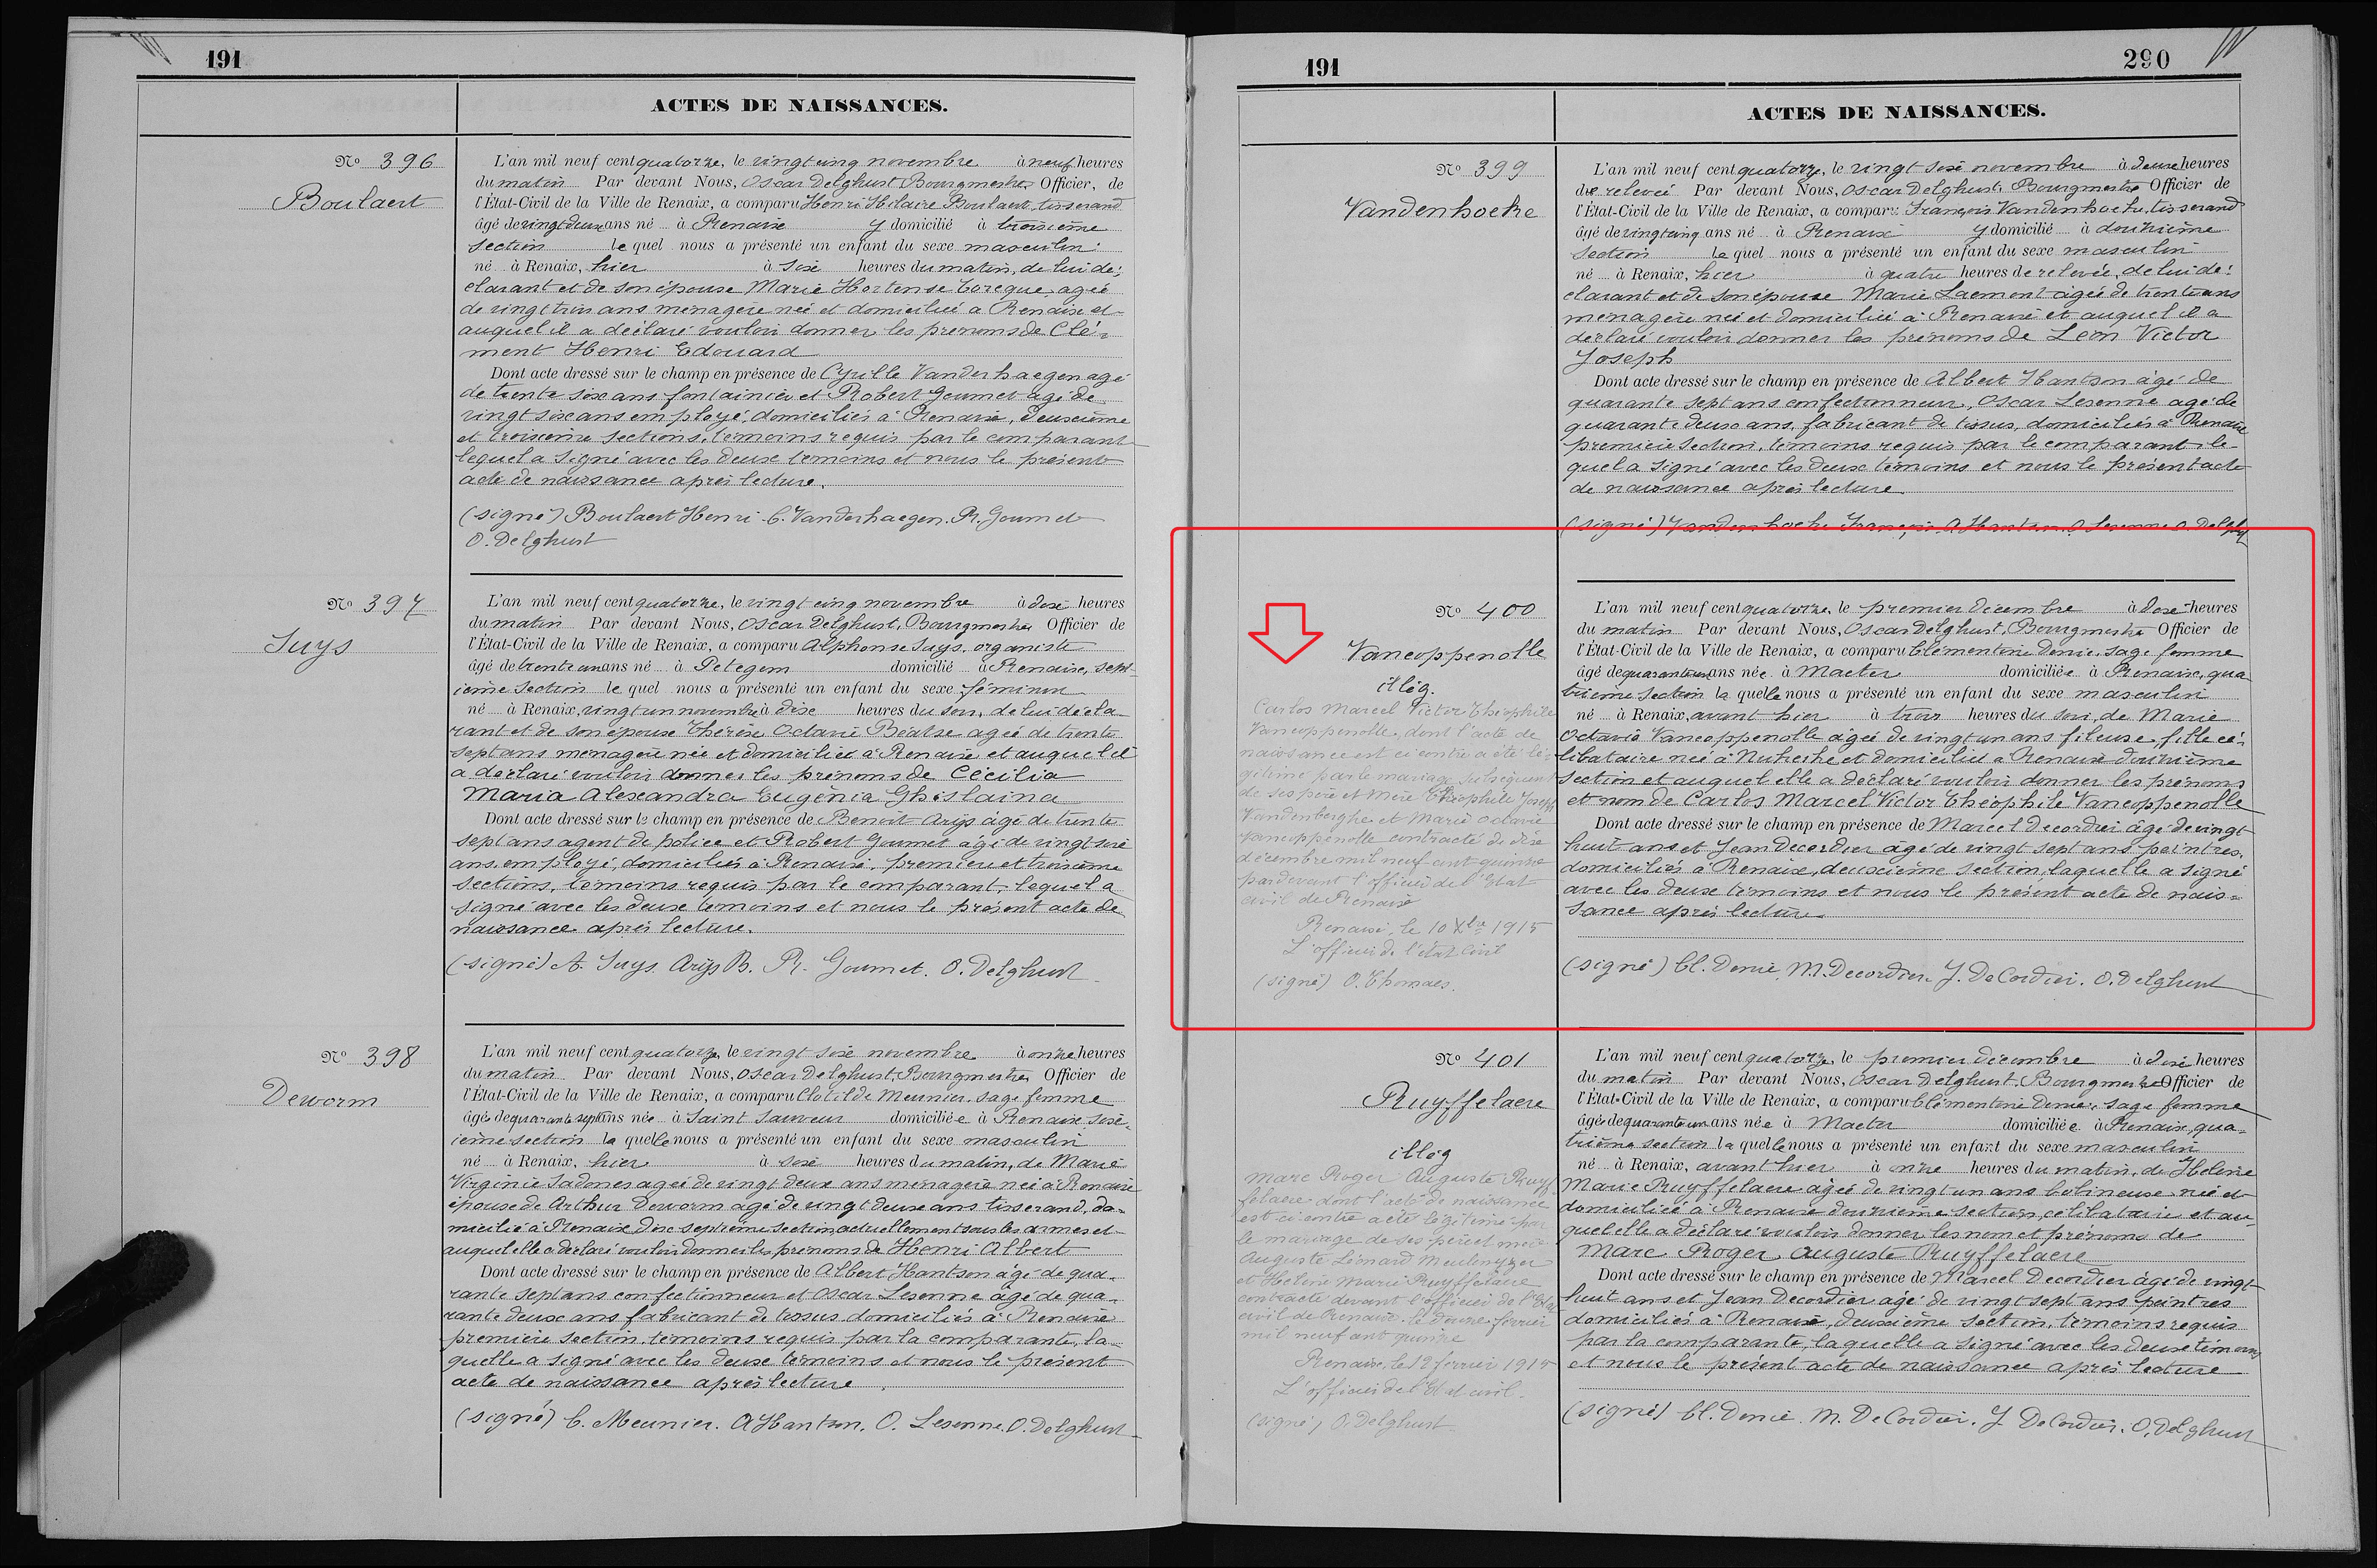 191
ACTES DE NAISSANCES.
Nº 396
Boulaert
L'an mil neuf cent quatorze, le vingt cinq novembre à neuf heures
du matin Par devant Nous, Oscar Delghust, Bourgmestre Officier, de
l'État-Civil de la Ville de Renaix, a comparu Henri Hilaire Boulaert, tisserand
âgé de vingt deux ans né à Renaix y domicilié à troisième
section lequel nous a présenté un enfant du sexe masculin:
né à Renaix, hier à six heures du matin, de lui dé:
clarant et de son épouse Marie Hortense Coreque, agée
de vingt trois ans ménagère née et domiciliée à Renaix et
auquel il a déclaré vouloir donner les prénoms de Clé-
ment Henri Edouard
Dont acte dressé sur le champ en présence de Cyrille Vanderhaegen agé
de trente six ans fontainier et Robert Goumet agé de
vingt six ans employé, domiciliés à Renaix, deuxième
et troisième sections, témoins requis par le comparant
lequel a signé avec les deux témoins et nous le présent
acte de naissance après lecture.
(signé) Boulaert Henri C. Vanderhaegen. R. Goumet
O. Delghust
Nº 397
Suys
L'an mil neuf cent quatorze, le vingt cinq novembre à dix heures
du matin Par devant Nous, Oscar Delghust, Bourgmestre Officier de
l'État-Civil de la Ville de Renaix, a comparu Alphonse Suys, organiste
âgé de trente un ans né à Petegem domicilié à Renaix, sept-
ième section lequel nous a présenté un enfant du sexe féminin
né à Renaix, vingt un novembre à dix heures du soir, de lui décla-
rant et de son épouse Thérèse Octavie Béatse agée de trente
sept ans ménagère née et domiciliée à Renaix et auquel il
a déclaré vouloir donner les prénoms de Cécilia
Maria Alexandra Eugénia Ghislaina
Dont acte dressé sur le champ en présence de Benoit Arijs âgé de trente
sept ans agent de police et Robert Goumet âgé de vingt six
ans, employé, domiciliés à Renaix, première et troisième
sections, témoins requis par le comparant, lequel a
signé avec les deux témoins et nous le présent acte de
naissance après lecture.
(signé) A. Suys. Arijs B. R. Goumet. O. Delghust
Nº 398
Deworm
L'an mil neuf cent quatorze, le vingt six novembre à onze heures
du matin Par devant Nous, Oscar Delghust, Bourgmestre Officier de
l'État-Civil de la Ville de Renaix, a comparu Clotilde Meunier, sage femme
âgée de quarante sept ans née à Saint Sauveur domiciliée à Renaix, six-
ième section la quelle nous a présenté un enfant du sexe masculin
né à Renaix, hier à six heures du matin, de Marie
Virginie Sadones agée de vingt deux ans ménagère née à Renaix
épouse de Arthur Deworm agé de vingt deux ans tisserand, do-
micilié à Renaix dix septième section, actuellement sous les armes et
auquel elle a déclaré vouloir donner les prénoms de Henri Albert
Dont acte dressé sur le champ en présence de Albert Hantson âgé de qua-
rante sept ans confectionneur et Oscar Lesenne âgé de qua-
rante deux ans fabricant de tissus domiciliés à Renaix
première section, témoins requis par la comparante, la-
quelle a signé avec les deux témoins et nous le présent
acte de naissance après lecture.
(signé) C. Meunier. A Hantson. O. Lesenne. O. Delghust
191
290
ACTES DE NAISSANCES.
Nº 399
Vandenhoeke
L'an mil neuf cent quatorze, le vingt six novembre à deux heures
de relevée Par devant Nous, Oscar Delghust, Bourgmestre Officier de
l'État-Civil de la Ville de Renaix, a comparu François Vandenhoeke, tisserand
âgé de vingt cinq ans né à Renaix y domicilié à douzième
section lequel nous a présenté un enfant du sexe masculin
né à Renaix, hier à quatre heures de relevée, de lui dé:
clarant et de son épouse Marie Laemont âgée de trente ans
ménagère née et domiciliée à Renaix et auquel il a
déclaré vouloir donner les prénoms de Léon Victor
Joseph
Dont acte dressé sur le champ en présence de Albert Hantson âgé de
quarante sept ans confectionneur, Oscar Lesenne agé de
quarante deux ans, fabricant de tissus, domiciliés à Renaix
première section, témoins requis par le comparant, le-
quel a signé avec les deux témoins et nous le présent acte
de naissance après lecture
(signé) Vandenhoeke François, A. Hantson. O. Lesenne O. Delghust
Nº 400
Vancoppenolle
illég.
Carlos Marcel Victor Théophile
Vancoppenolle, dont l'acte de
naissance est ci contre a été lé-
gitimé par le mariage subséquent
de ses père et mère Théophile Joseph
Vandenberghe et Marie Octavie
Vancoppenolle contracté le dix
décembre mil neuf cent quinze
par devant l'officier de l'Etat
civil de Renaix
Renaix, le 10 Xbre 1915
L'officier de l'état civil
(signé) O. Thomaes.
L'an mil neuf cent quatorze, le premier décembre à dix heures
du matin Par devant Nous, Oscar Delghust, Bourgmestre Officier de
l'État-Civil de la Ville de Renaix, a comparu Clémentine Denie, sage femme
âgée de quarante un ans née à Maeter domiciliée à Renaix, qua
trième section la quelle nous a présenté un enfant du sexe masculin
né à Renaix, avant hier à trois heures du soir, de Marie
Octavie Vancoppenolle agée de vingt un ans fileuse, fille cé-
libataire née à Nukerke et domiciliée à Renaix douzième
section et auquel elle a déclaré vouloir donner les prénoms
et nom de Carlos Marcel Victor Théophile Vancoppenolle
Dont acte dressé sur le champ en présence de Marcel Decordier âgé de vingt
huit ans et Jean Decordier âgé de vingt sept ans peintres,
domiciliés à Renaix, deuxième section, laquelle a signé
avec les deux témoins et nous le présent acte de nais-
sance après lecture
(signé) Cl. Denie, M. Decordier. J. DeCordier. O. Delghust
Nº 401
Ruyffelaere
illég
Marc Roger Auguste Ruyf
felaere dont l'acte de naissance
est ci contre a été légitimé par
le mariage de ses père et mère
Auguste Léonard Meulenyzer
et Helène Marie Ruyffelaere
contracté devant l'officier de l'Etat
civil de Renaix, le douze février
mil neuf cent quinze
Renaix, le 12 février 1915
L'officier de l'Etat civil.
(signé) O. Delghust
L'an mil neuf cent quatorze, le premier décembre à dix heures
du matin Par devant Nous, Oscar Delghust, Bourgmestre Officier de
l'État-Civil de la Ville de Renaix, a comparu Clémentine Denie, sage femme
âgée de quarante un ans née à Maeter domiciliée à Renaix, qua-
trième section la quelle nous a présenté un enfant du sexe masculin
né à Renaix, avant hier à onze heures du matin, de Helène
Marie Ruyffelaere âgée de vingt un ans bobineuse née et
domiciliée à Renaix douzième section, célibataire et au-
quel elle a déclaré vouloir donner les nom et prénoms de
Marc Roger Auguste Ruyffelaere
Dont acte dressé sur le champ en présence de Marcel Decordier âgé de vingt
huit ans et Jean Decordier agé de vingt sept ans peintres
domiciliés à Renaix, deuxième section, témoins requis
par la comparante, laquelle a signé avec les deux témoins
et nous le présent acte de naissance après lecture
(signé) Cl. Denie. M. DeCordier. J DeCordier. O. Delghust